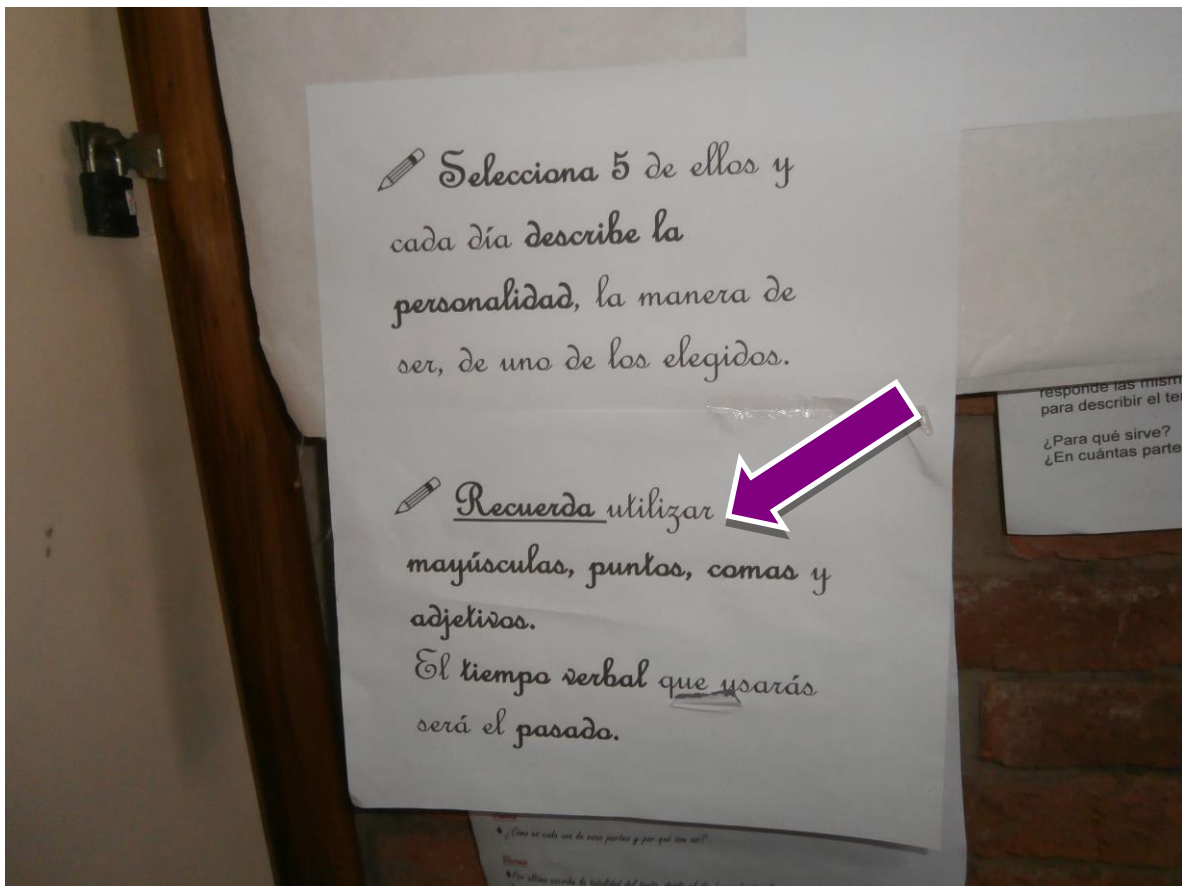 Selecciona 5 de ellos y
cada día describe la
personalidad, la manera de
ser, de uno de los elegidos.
Recuerda utilizar
mayúsculas, puntos, comas y
adjetivos.
El tiempo verbal que usarás
será el pasado.
responde las
para describir el
¿Para qué sirve?
¿En cuántas
¿Cómo es cada una de esas partes y por qué son así?